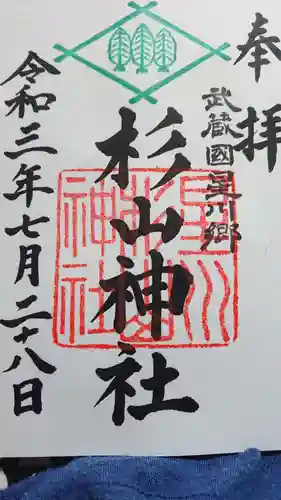 奉拝
武蔵國星川郷
杉山神社
令和三年七月二十八日
星川
杉山
神社